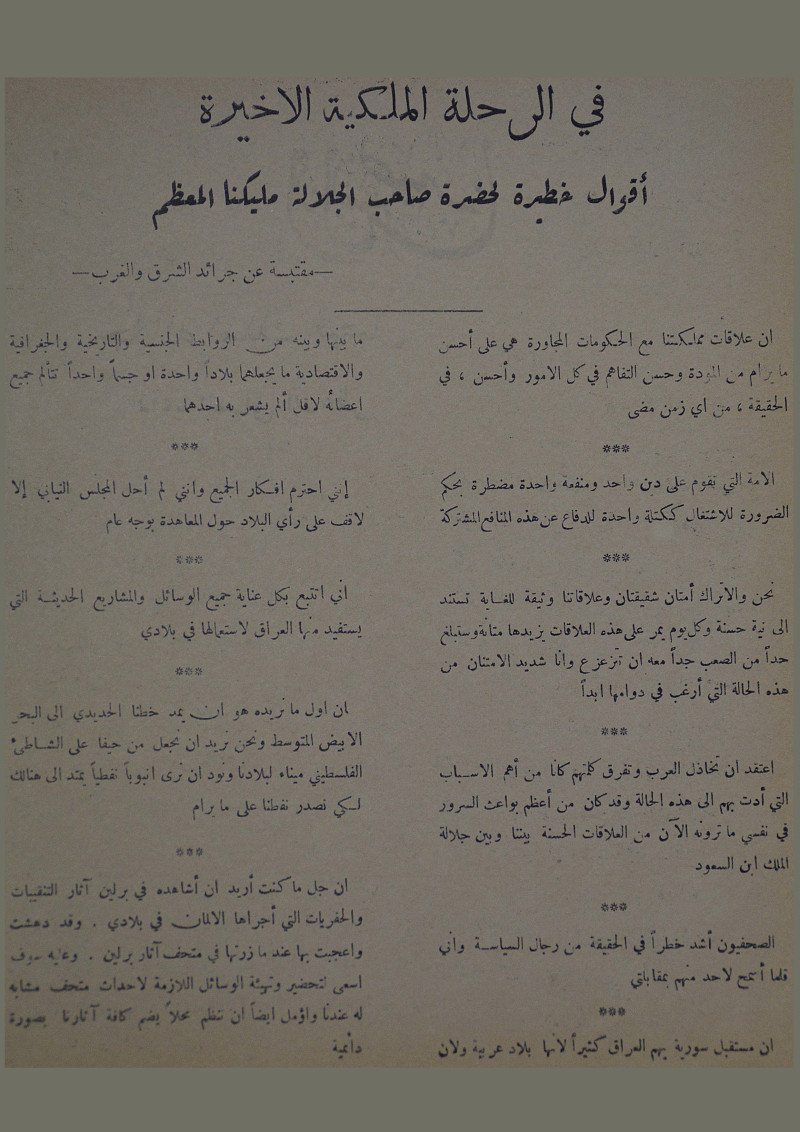 في الرحلة الملكية الاخيرة
أقوال خطيرة لحضرة صاحب الجلالة مليكنا المعظم
—مقتبسة عن جرائد الشرق والغرب—
ان علاقات مملكتنا مع الحكومات المجاورة هي على أحسن
ما يرام من المودة وحسن التفاهم في كل الامور وأحسن ، في
الحقيقة ، من اي زمن مضى
***
الامة التي تقوم على دين واحد ومنفعة واحدة مضطرة بحكم
الضرورة للاشتغال ككتلة واحدة للدفاع عن هذه المنافع المشتركة
***
نحن والاتراك أمتان شقيقتان وعلاقاتنا وثيقة للغاية تستند
الى نية حسنة وكل يوم يمر على هذه العلاقات يزيدها متانة وستبلغ
حداً من الصعب جداً معه ان تتزعزع وانا شديد الامتنان من
هذه الحالة التي أرغب في دوامها ابداً
***
اعتقد ان تخاذل العرب وتفرق كلمتهم كانا من أهم الاسباب
التي أدت بهم الى هذه الحالة وقد كان من أعظم بواعث السرور
في نفسي ما ترونه الآن من العلاقات الحسنة بيننا وبين جلالة
الملك ابن السعود
***
الصحفيون أشد خطراً في الحقيقة من رجال السياسة واني
قلما أسمح لاحد منهم بمقابلتي
***
ان مستقبل سورية يهم العراق كثيراً لانها بلاد عربية ولان
ما بينها وبينه من الروابط الجنسية والتاريخية والجغرافية
والاقتصادية ما يجعلهما بلاداً واحدة او جسماً واحداً تتألم جميع
اعضائه لاقل ألم يشعر به احدهما
***
إنني احترم افكار الجميع وانني لم أحل المجلس النيابي إلا
لاقف على رأي البلاد حول المعاهدة بوجه عام
***
أني اتتبع بكل عناية جميع الوسائل والمشاريع الحديثة التي
يستفيد منها العراق لاستعمالها في بلادي
***
ان اول ما نريده هو ان يمد خطنا الحديدي الى البحر
الابيض المتوسط ونحن نريد ان نجعل من حيفا على الشاطئ
الفلسطيني ميناء لبلادنا ونود ان نرى انبوباً نفطياً يمتد الى هنالك
لكي نصدر نفطنا على ما يرام
***
ان جل ما كنت أريد ان أشاهده في برلين آثار التنقيبات
والحفريات التي أجراها الالمان في بلادي . وقد دهشت
واعجبت بها عند ما زرتها في متحف آثار برلين . وعليه سوف
اسعى لتحضير وتهيئة الوسائل اللازمة لاحداث متحف مشابه
له عندنا واؤمل ايضاً ان ننظم محلاً يضم كافة آثارنا بصورة
دائمية